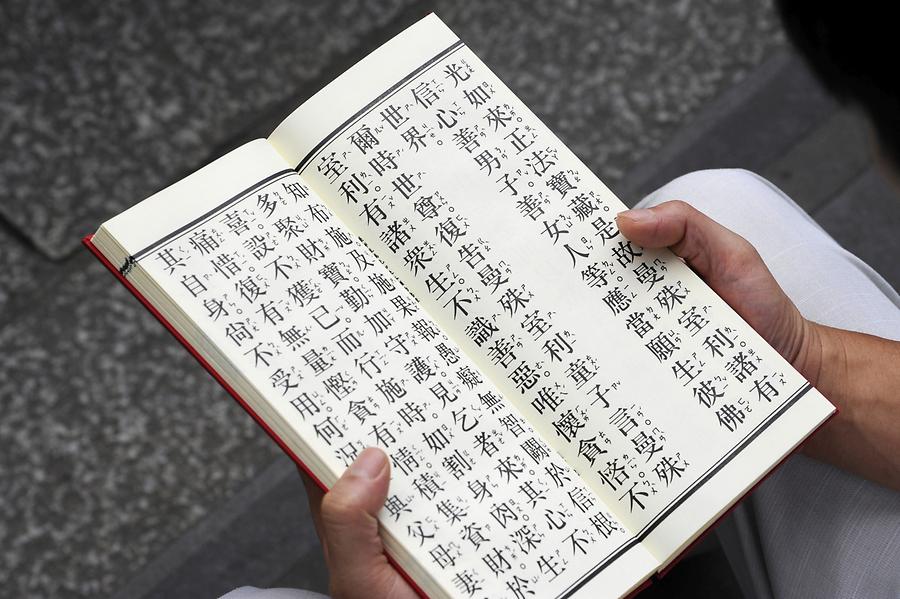 光如來正法寶藏是故曼殊室利諸有
信心善男子善女人等應當願生彼佛
世界。
爾時世尊復告曼殊室利童子言。曼殊
室利。有諸衆生不識善惡。唯懷貪悋。不
知布施及施果報。愚癡無智。闕於信根。
多聚財寶。勤加守護。見乞者來。其心不
喜。設不獲已。而行施時。如割身肉。深生
痛惜。復有無量慳貪有情。積集資財。於
其自身尚不受用。何況與父母妻